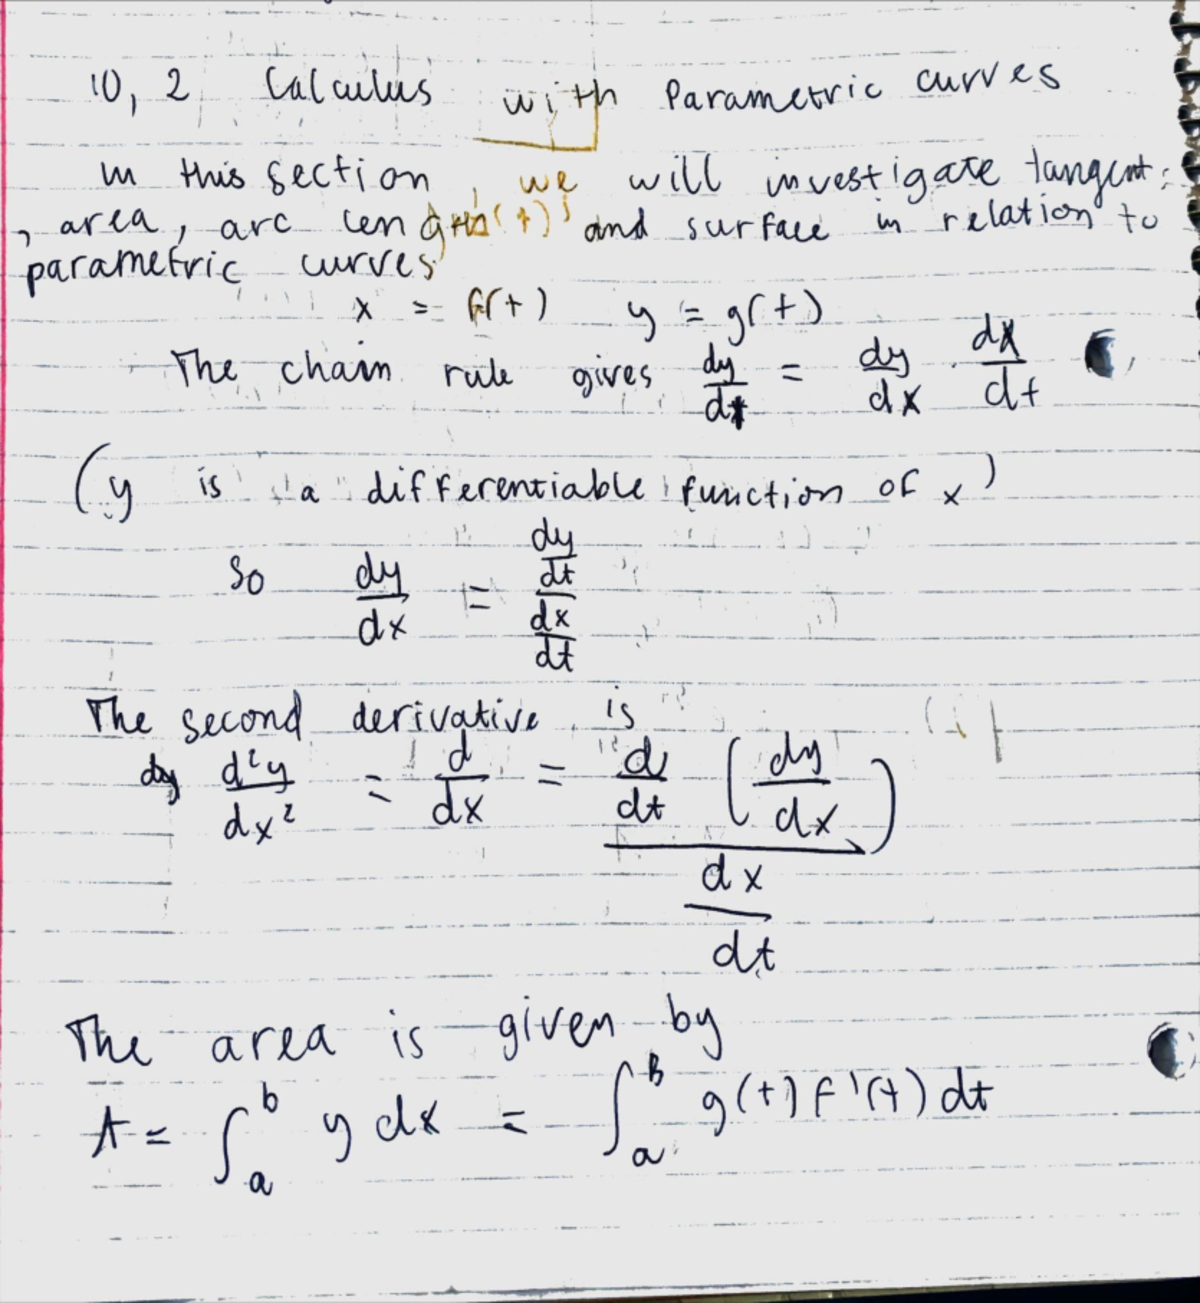 10, 2 Calculus with Parametric curves
in this section, we will investigate tangent
, area, arc length and surface in relation to
parametric curves
x = f(t) y = g(t)
The chain rule gives dy/dt = dy/dx . dx/dt
(y is a differentiable function of x)
So dy/dx = (dy/dt)/(dx/dt)
The second derivative is
dy d²y/dx² = d/dx = (d/dt (dy/dx))/(dx/dt)
The area is given by
A = ∫_a^b y dx = ∫_a^B g(t) f'(t) dt